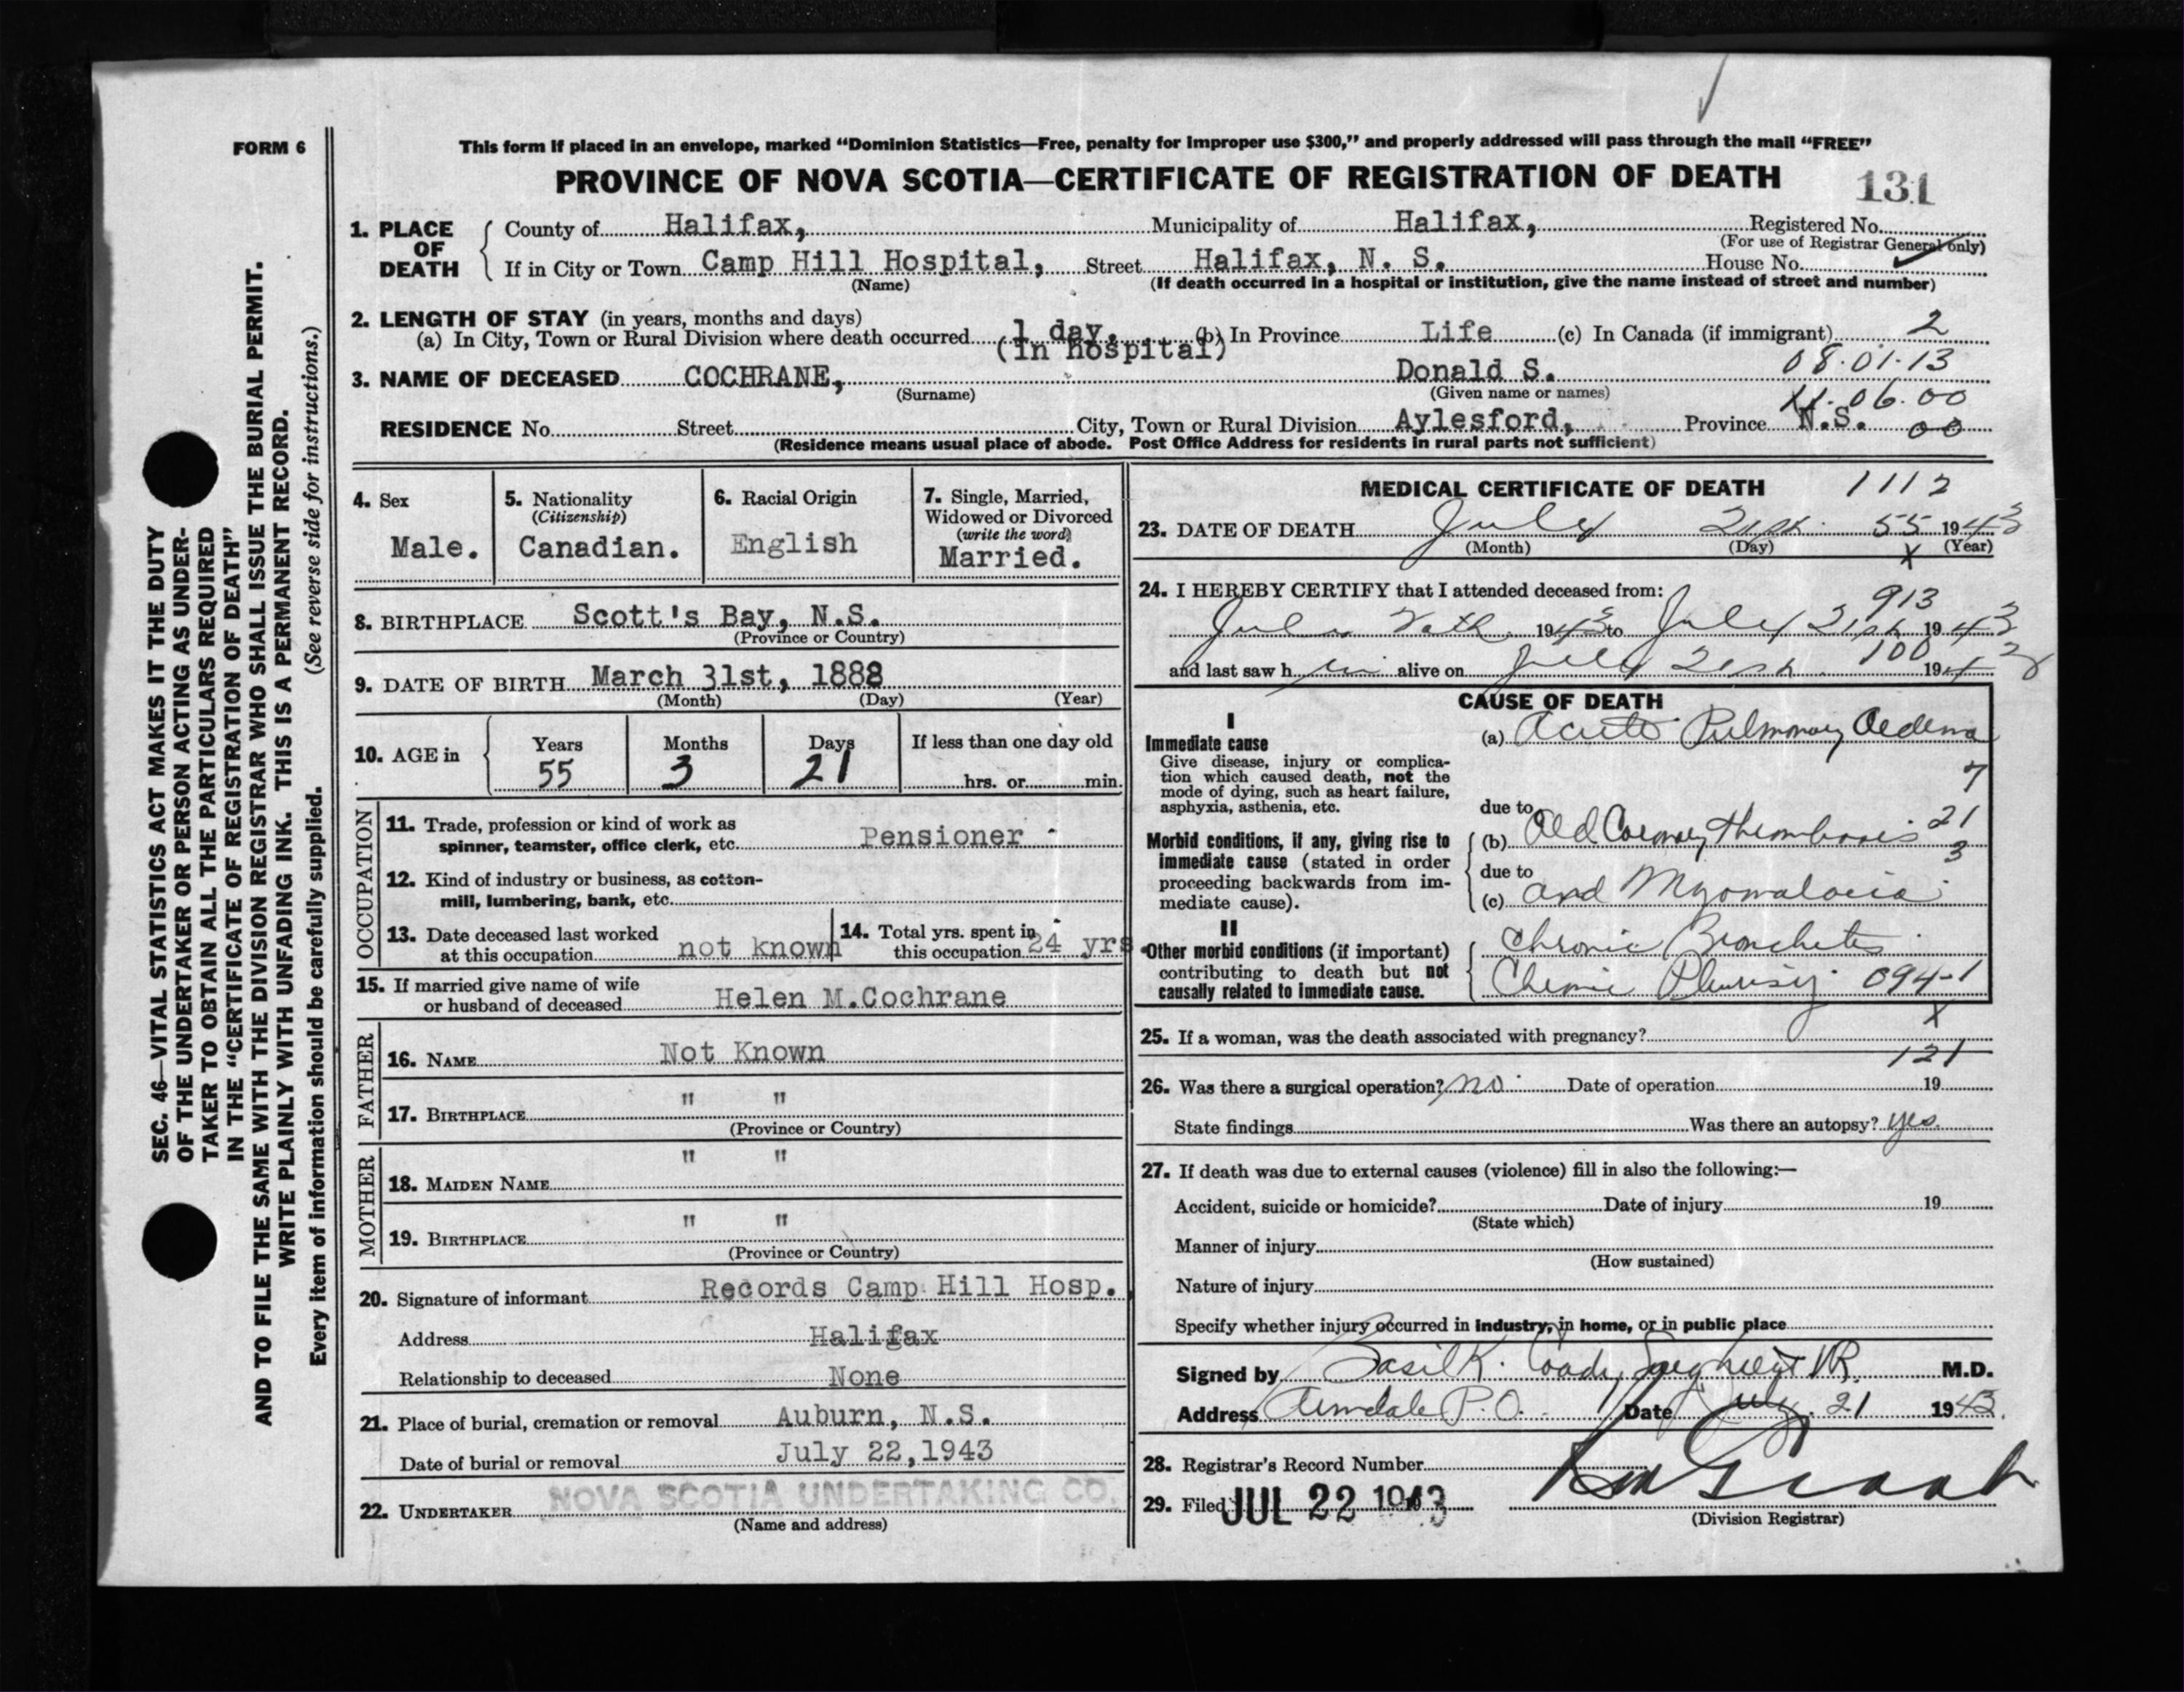 FORM 6
This form if placed in an envelope, marked “Dominion Statistics—Free, penalty for improper use $300,” and properly addressed will pass through the mail “FREE”
PROVINCE OF NOVA SCOTIA—CERTIFICATE OF REGISTRATION OF DEATH
131
1. PLACE OF DEATH
County of Halifax, Municipality of Halifax, Registered No.
(For use of Registrar General only)
If in City or Town Camp Hill Hospital, Street Halifax, N. S. House No.
(Name) (If death occurred in a hospital or institution, give the name instead of street and number)
2. LENGTH OF STAY (in years, months and days)
(a) In City, Town or Rural Division where death occurred 1 day, (b) In Province Life (c) In Canada (if immigrant) 2
(in hospital)
08.01.13
3. NAME OF DECEASED COCHRANE, Donald S.
(Surname) (Given name or names)
11.06.00
RESIDENCE No. Street City, Town or Rural Division Aylesford, Province N.S. 00
(Residence means usual place of abode. Post Office Address for residents in rural parts not sufficient)
4. Sex
Male.
5. Nationality
(Citizenship)
Canadian.
6. Racial Origin
English
7. Single, Married,
Widowed or Divorced
(write the word)
Married.
8. BIRTHPLACE Scott's Bay, N.S.
(Province or Country)
9. DATE OF BIRTH March 31st, 1888
(Month) (Day) (Year)
10. AGE in
Years Months Days If less than one day old
55 3 21 hrs. or min.
OCCUPATION
11. Trade, profession or kind of work as
spinner, teamster, office clerk, etc. Pensioner
12. Kind of industry or business, as cotton-
mill, lumbering, bank, etc.
13. Date deceased last worked
at this occupation not known
14. Total yrs. spent in
this occupation 24 yrs
15. If married give name of wife
or husband of deceased Helen M.Cochrane
FATHER
16. NAME Not Known
17. BIRTHPLACE " "
(Province or Country)
MOTHER
18. MAIDEN NAME " "
19. BIRTHPLACE " "
(Province or Country)
20. Signature of informant Records Camp Hill Hosp.
Address Halifax
Relationship to deceased None
21. Place of burial, cremation or removal Auburn, N.S.
Date of burial or removal July 22,1943
22. UNDERTAKER NOVA SCOTIA UNDERTAKING CO.
(Name and address)
MEDICAL CERTIFICATE OF DEATH 1112
23. DATE OF DEATH July 21st. 55 1943
(Month) (Day) X (Year)
24. I HEREBY CERTIFY that I attended deceased from:
913
July 1943 to July 21st 1943
100
and last saw him alive on July 21st 1943
CAUSE OF DEATH
I
Immediate cause
Give disease, injury or complica-
tion which caused death, not the
mode of dying, such as heart failure,
asphyxia, asthenia, etc.
(a) Acute Pulmonary Oedema
7
due to
21
Morbid conditions, if any, giving rise to
immediate cause (stated in order
proceeding backwards from im-
mediate cause).
(b) Old Coronary Thrombosis
3
due to
(c) and Myomalacia
II
Other morbid conditions (if important)
contributing to death but not
causally related to immediate cause.
Chronic Bronchitis
Chronic Pleurisy 094-1
X
25. If a woman, was the death associated with pregnancy?
121
26. Was there a surgical operation? no Date of operation 19
State findings Was there an autopsy? yes.
27. If death was due to external causes (violence) fill in also the following:—
Accident, suicide or homicide? Date of injury 19
(State which)
Manner of injury
(How sustained)
Nature of injury
Specify whether injury occurred in industry, in home, or in public place
Signed by Basil K. Coady M.D.
Address Armdale P.O. Date July 21 1943.
28. Registrar's Record Number
29. Filed JUL 22 1943
(Division Registrar)
SEC. 46—VITAL STATISTICS ACT MAKES IT THE DUTY
OF THE UNDERTAKER OR PERSON ACTING AS UNDER-
TAKER TO OBTAIN ALL THE PARTICULARS REQUIRED
IN THE “CERTIFICATE OF REGISTRATION OF DEATH”
AND TO FILE THE SAME WITH THE DIVISION REGISTRAR WHO SHALL ISSUE THE BURIAL PERMIT.
WRITE PLAINLY WITH UNFADING INK. THIS IS A PERMANENT RECORD.
Every item of information should be carefully supplied. (See reverse side for instructions.)